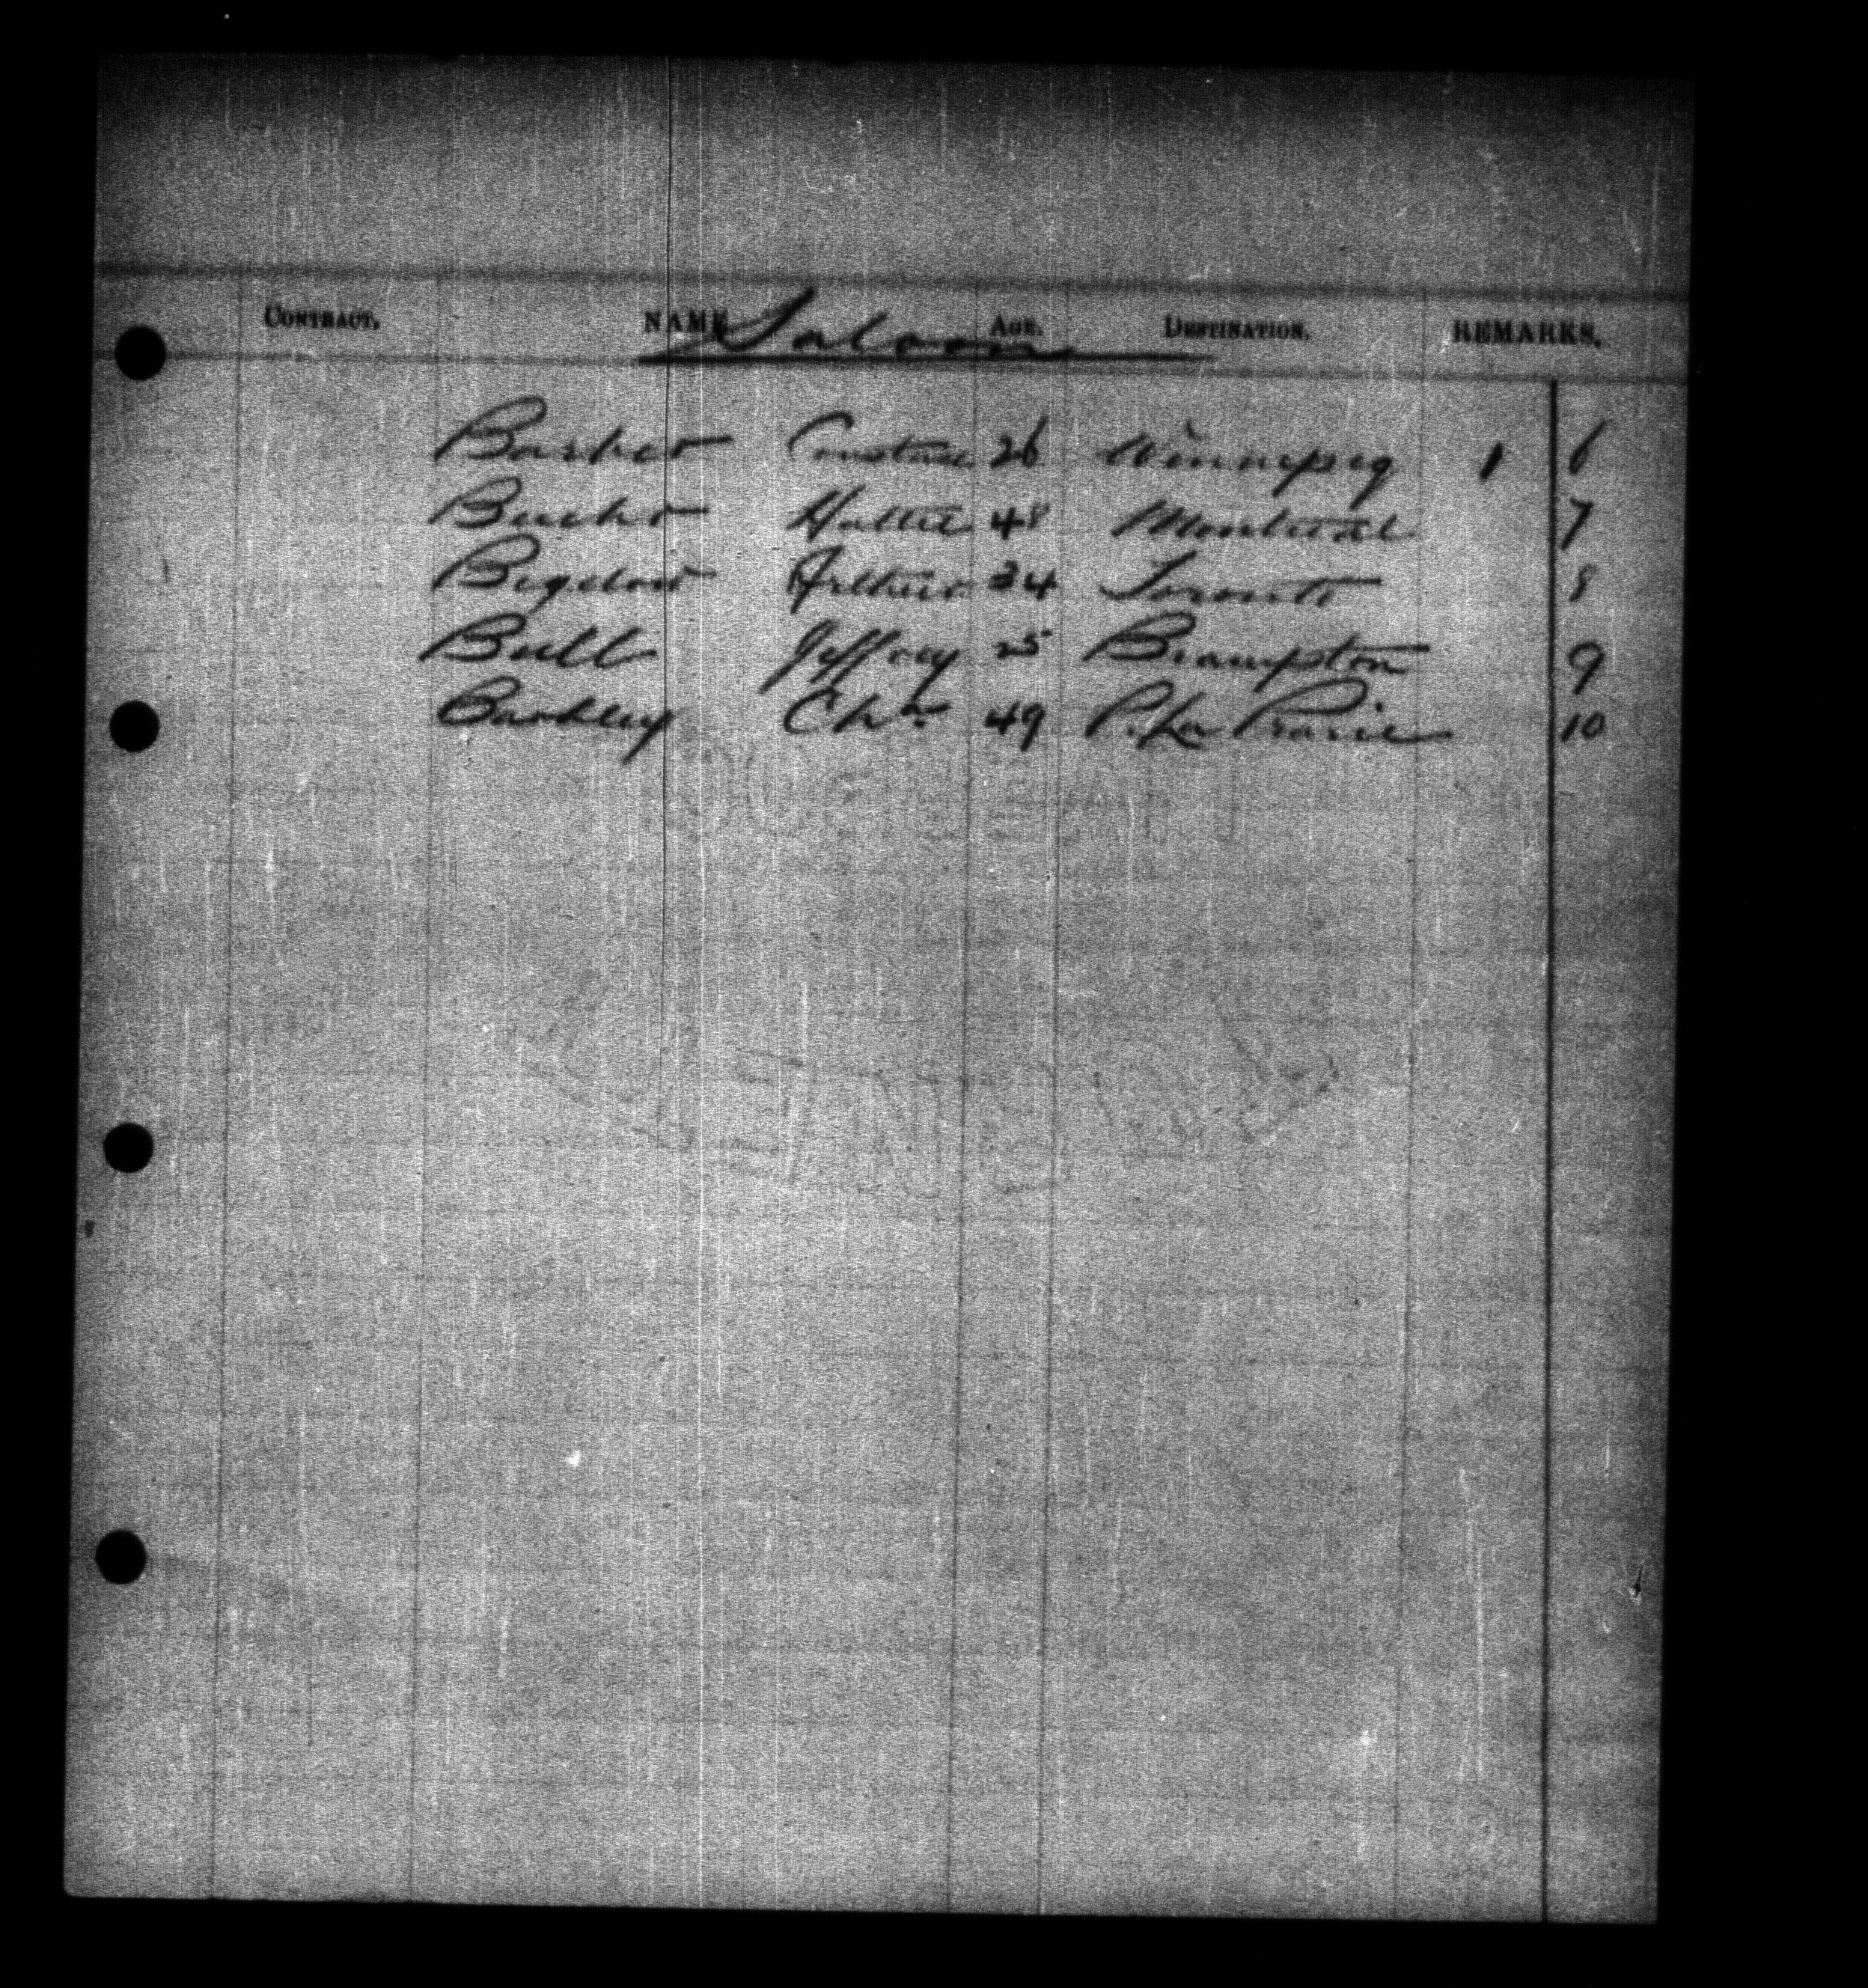 CONTRACT. NAME Saloon AGE. DESTINATION. REMARKS.
Barber Constace 26 Winnipeg 1 6
48 Montreal 7
Bigelow Arthur 34 Toronto 8
Bull Jeffrey 25 Brampton 9
Barkley Chas 49 P. La Prarie 10